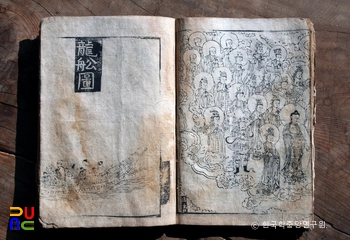 龍舩圖
© 한국학중앙연구원